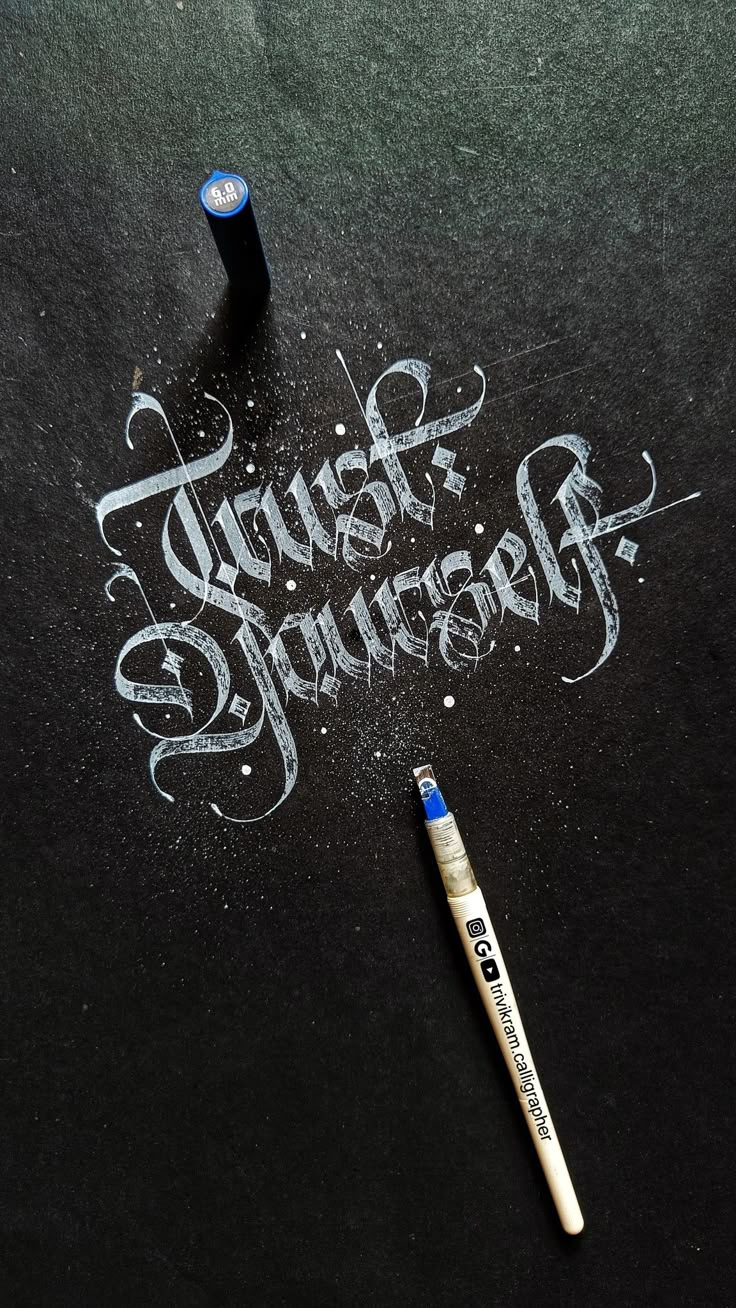 6.0
mm
Trust
Yourself
trivikram.calligrapher